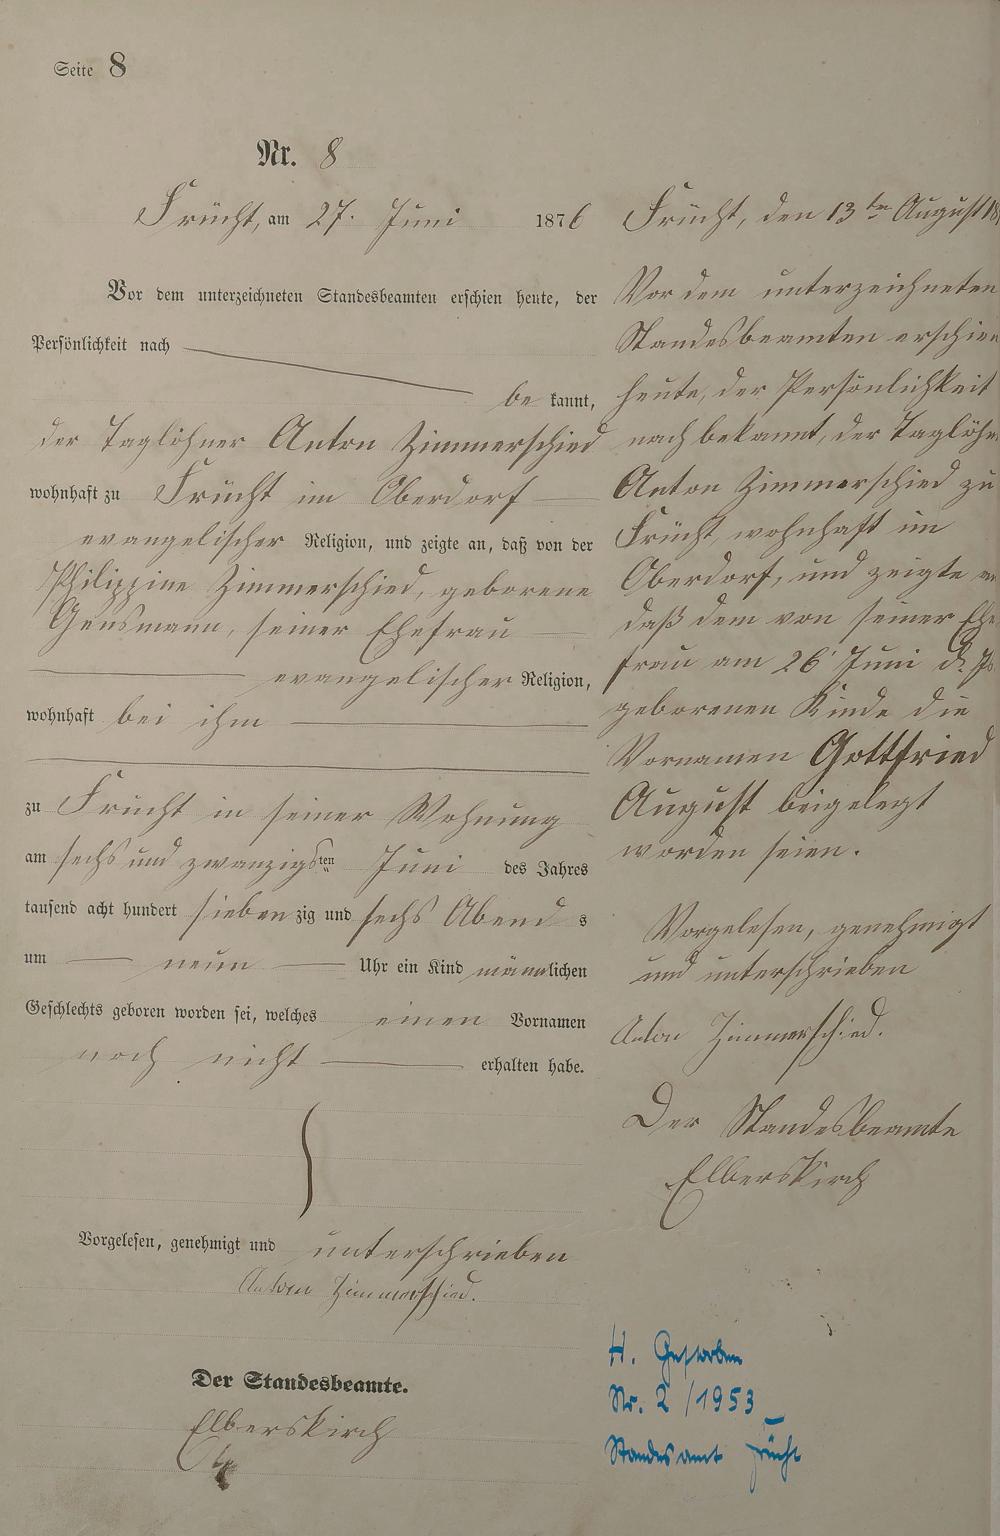 Seite 8
Nr. 8
Frücht, am 27. Juni 1876
Vor dem unterzeichneten Standesbeamten erschien heute, der
Persönlichkeit nach
be kannt,
der Taglöhner Anton Zimmerschied
wohnhaft zu Frücht im Oberdorf
evangelischer Religion, und zeigte an, daß von der
Philippine Zimmerschied, geborene
Gensmann, seiner Ehefrau
evangelischer Religion,
wohnhaft bei ihm
zu Frücht in seiner Wohnung
am sechs und zwanzigsten Juni des Jahres
tausend acht hundert sieben zig und sechs Abend s
um neun Uhr ein Kind männlichen
Geschlechts geboren worden sei, welches einen Vornamen
noch nicht erhalten habe.
Vorgelesen, genehmigt und unterschrieben
Anton Zimmerschied.
Der Standesbeamte.
Elberskirch
Frücht, den 13ten August 18
Vor dem unterzeichneten
Standesbeamten erschien
heute, der Persönlichkeit
nach bekannt, der Taglöhn
Anton Zimmerschied zu
Frücht, wohnhaft im
Oberdorf, und zeigte an
daß dem von seiner Ehe
frau am 26 Juni d. Js
geborenen Kinde die
Vornamen Gottfried
August beigelegt
worden seien.
Vorgelesen, genehmigt
und unterschrieben
Anton Zimmerschied.
Der Standesbeamte
Elberskirch
H. Gestorben
Nr. 2/1953
Standesamt Frücht